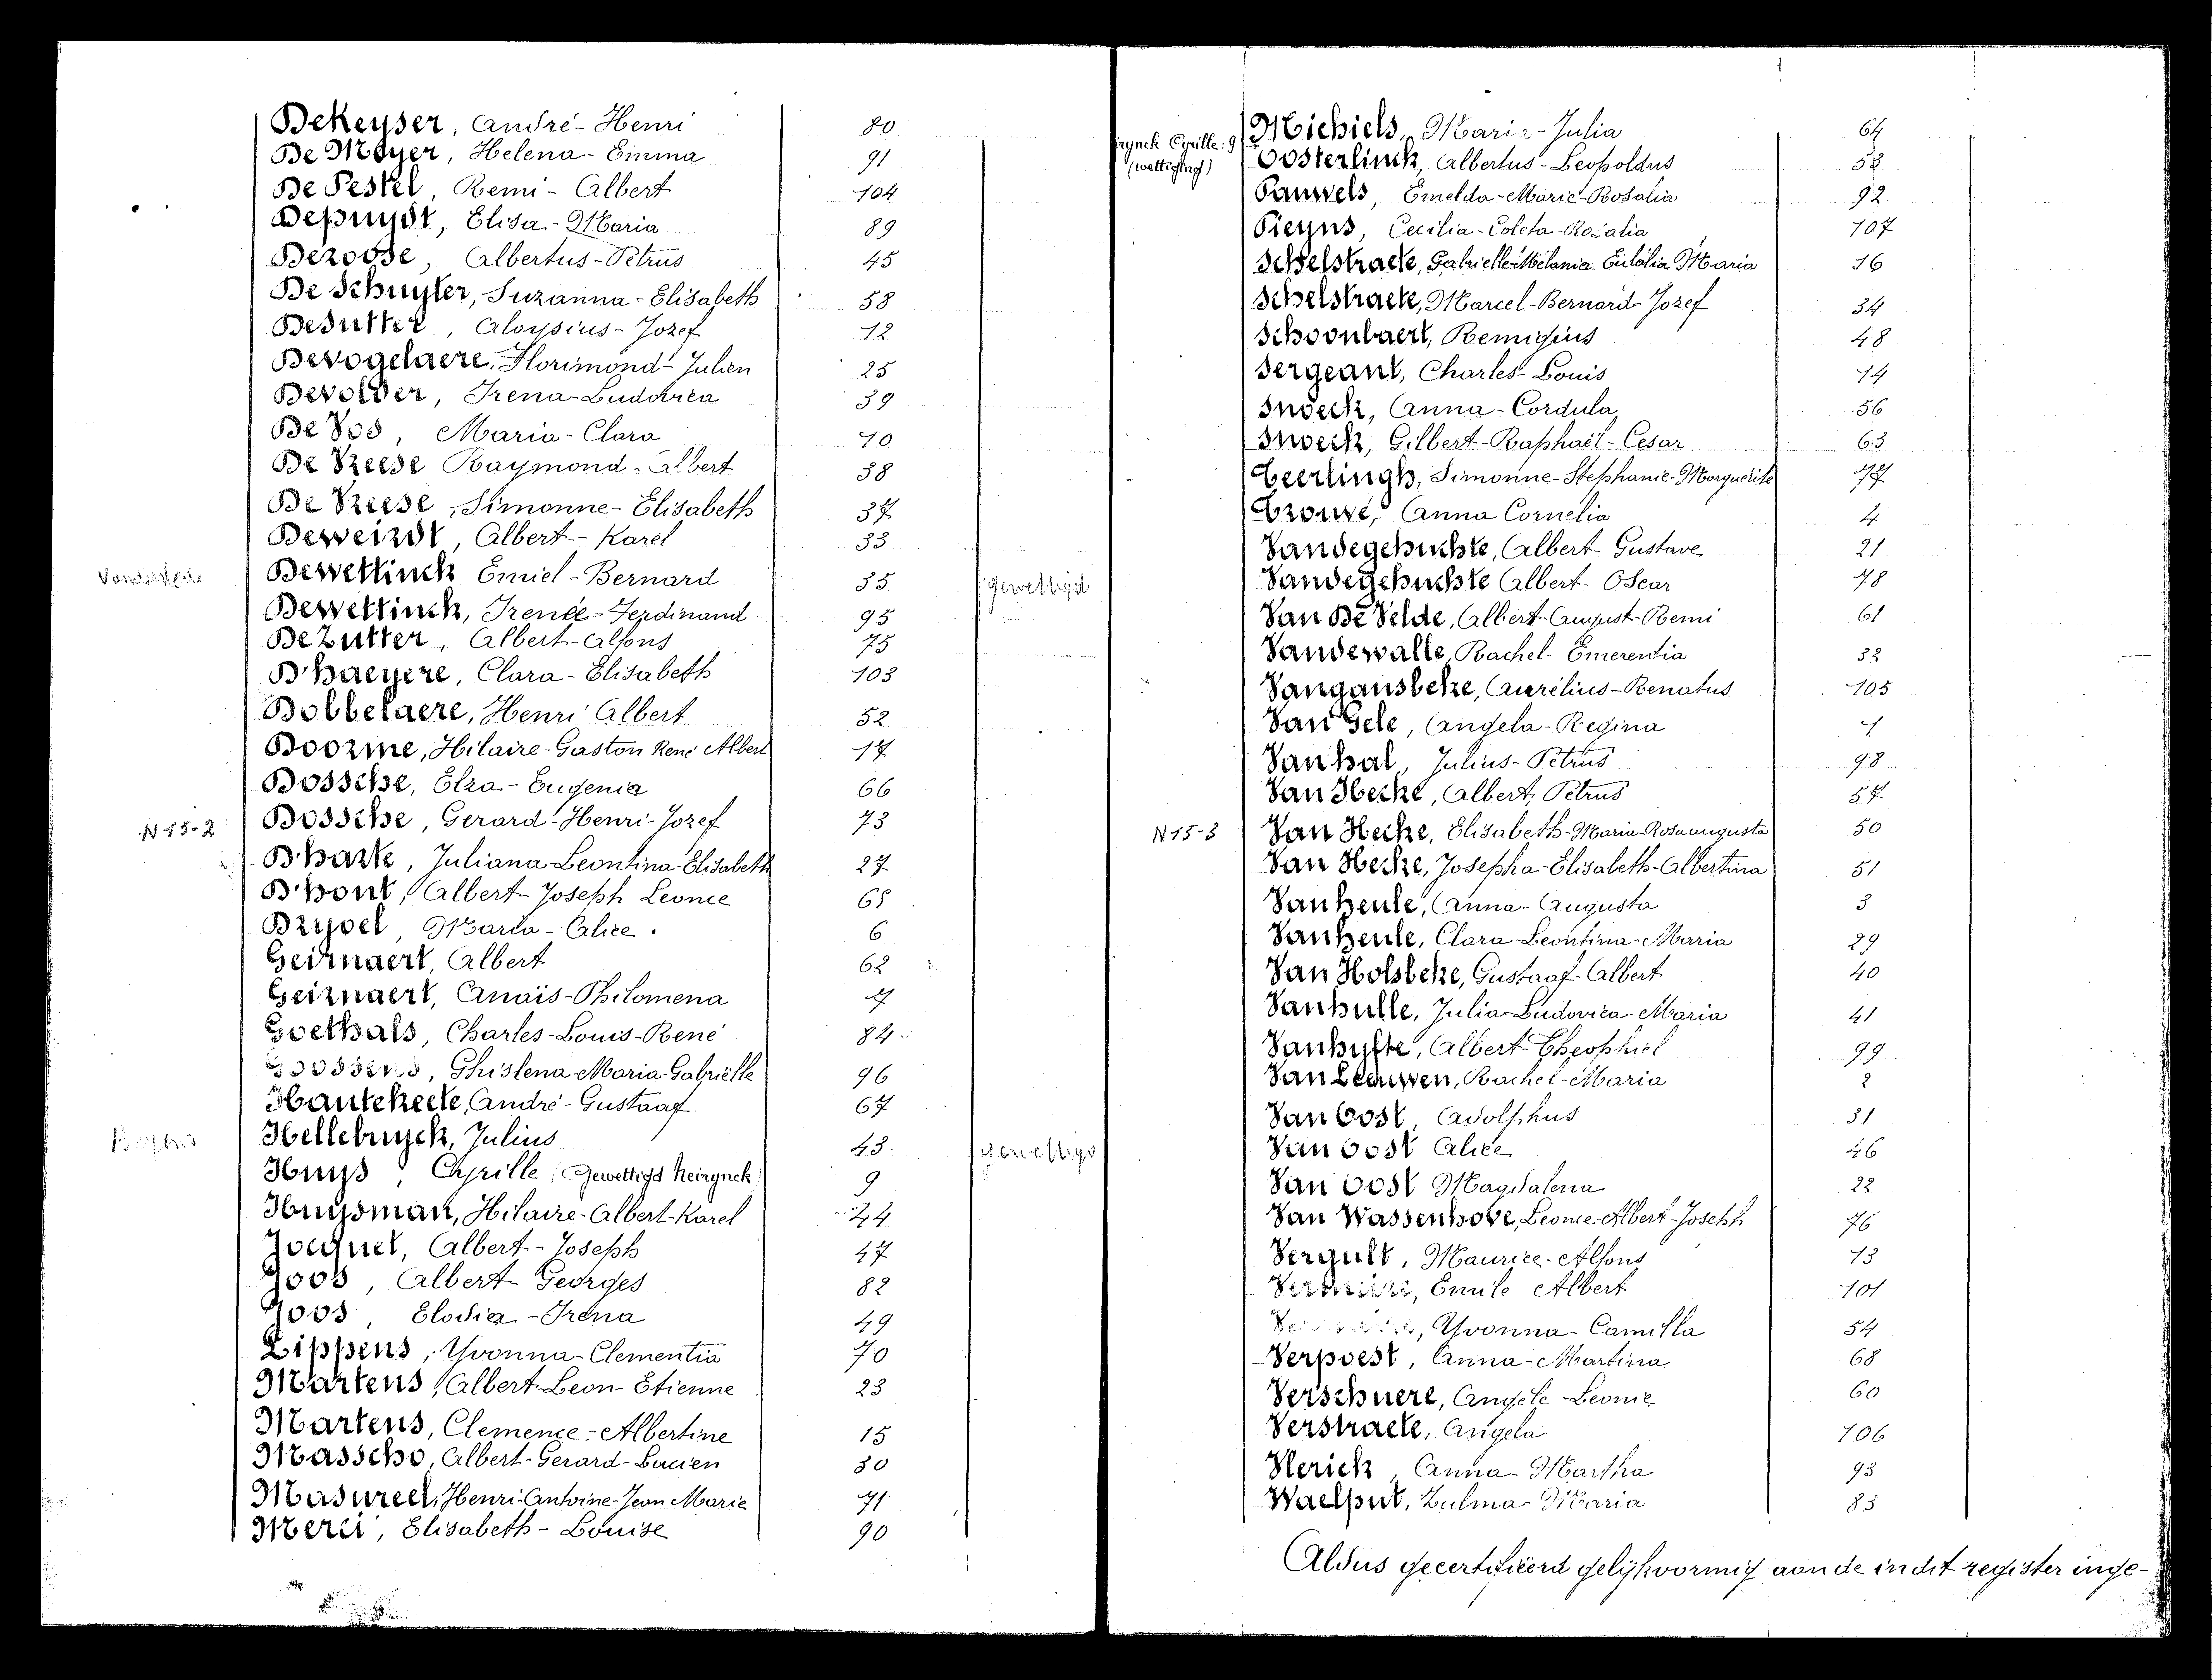 DeKeyser, André-Henri 80
De Meyer, Helena-Emma 91
De Pestel, Remi-Albert 104
Depuydt, Elisa-Maria 89
Deroose, Albertus-Petrus 45
De Schuyter, Suzanna-Elisabeth 58
Desutter, Aloysius-Jozef 12
Devogelaere, Florimond-Julien 25
Devolder, Irena-Ludovica 39
De Vos, Maria-Clara 10
De Vreese Raymond-Albert 38
De Vreese, Simonne-Elisabeth 37
Deweirdt, Albert-Karel 33
Dewettinck Emiel-Bernard 35 gewettigd
Dewettinck, Irenée-Ferdinand 95
De Zutter, Albert-Alfons 75
D'haeyere, Clara-Elisabeth 103
Dobbelaere, Henri Albert 52
Doorme, Hilaire-Gaston René Albert 17
Dossche, Elza-Eugenia 66
N 15-2 Dossche, Gerard-Henri-Jozef 73
Dhaste, Juliana-Leontina-Elisabeth 27
D'hont, Albert-Joseph Leonce 65
Dryoel, Maria-Alice 6
Geirnaert, Albert 62
Geirnaert, Anaïs-Philomena 7
Goethals, Charles-Louis-René 84
Goossens, Ghislena-Maria-Gabriëlle 96
Hautekeete, André-Gustaaf 67
Hellebuyck, Julius 43 gewettigd
Huys, Cyrille (Gewettigd Neirynck) 9
Huysman, Hilaire-Albert-Karel 44
Jocquet, Albert-Joseph 47
Joos, Albert-Georges 82
Joos, Elodia-Irena 49
Lippens, Yvonna-Clementia 70
Martens, Albert-Leon-Etienne 23
Martens, Clemence-Albertine 15
Masscho, Albert-Gerard-Lucien 30
Masureel, Henri-Antoine-Jean Marie 71
Merci, Elisabeth-Louise 90
Michiels, Maria-Julia 64
irynck Cyrille: 9
(wettiging)
Oosterlinck, Albertus-Leopoldus 53
Pauwels, Emelda-Marie-Rosalia 92
Pieyns, Cecilia-Coleta-Rozalia 107
Schelstraete, Gabrielle-Mélania Eulalia Maria 16
Schelstraete, Marcel-Bernard-Jozef 34
Schoonbaert, Remigius 48
Sergeant, Charles-Louis 14
Snoeck, Anna-Cordula 56
Snoeck, Gilbert-Raphaël-Cesar 63
Teerlingh, Simonne-Stephanie-Marguerite 77
Trouvé, Anna Cornelia 4
Vandegehuchte, Albert-Gustave 21
Vandegehuchte Albert-Oscar 78
Van De Velde, Albert-August-Remi 61
Vandewalle, Rachel-Emerentia 32
Vangansbeke, Aurélius-Renatus 105
Van Gele, Angela-Regina 1
Vanhal, Julius-Petrus 98
Van Hecke, Albert, Petrus 57
N 15-3 Van Hecke, Elisabeth-Maria-Rosa Augusta 50
Van Hecke, Josepha-Elisabeth-Albertina 51
Vanheule, Anna-Augusta 3
Vanheule, Clara-Leontina-Maria 29
Van Holsbeke, Gustaaf-Albert 40
Vanhulle, Julia-Ludovica-Maria 41
Vanhyfte, Albert-Theophiel 99
Van Leeuwen, Rachel-Maria 2
Van Oost, Adolphus 31
Van Oost Alice 46
Van Oost Magdalena 22
Van Wassenhove, Leonce-Albert-Joseph 76
Vergult, Maurice-Alfons 13
Emile Albert 101
Yvonna-Camilla 54
Verpoest, Anna-Martina 68
Verschuere, Angèle-Leonie 60
Verstraete, Angela 106
Vlerick, Anna-Martha 93
Waelput, Zulma-Maria 83
Aldus gecertifiëerd gelijkvormig aan de in dit register inge-